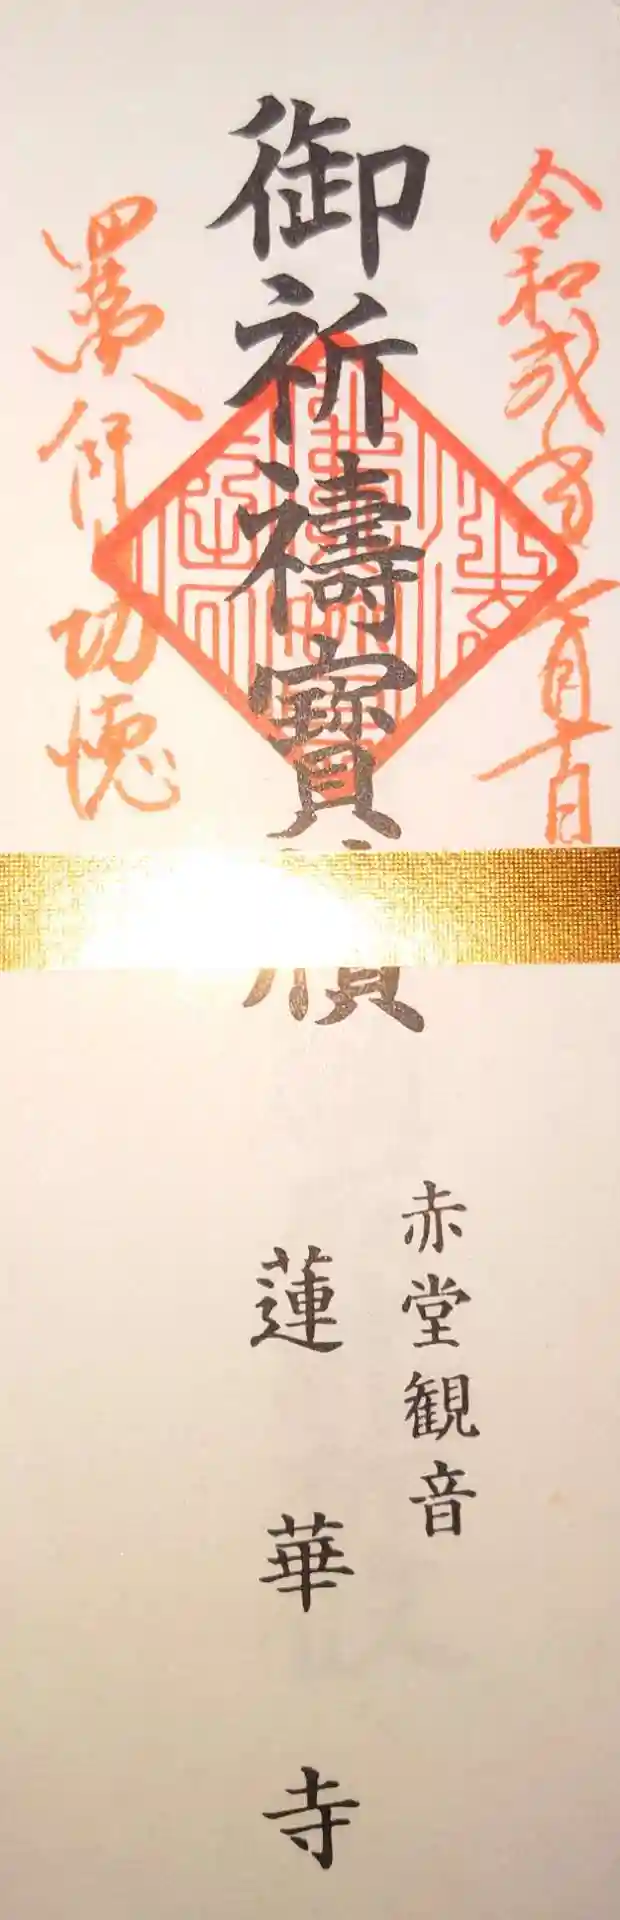 令和弐年 月十日
御祈禱寶
四萬八千日功徳
赤堂観音
蓮華寺